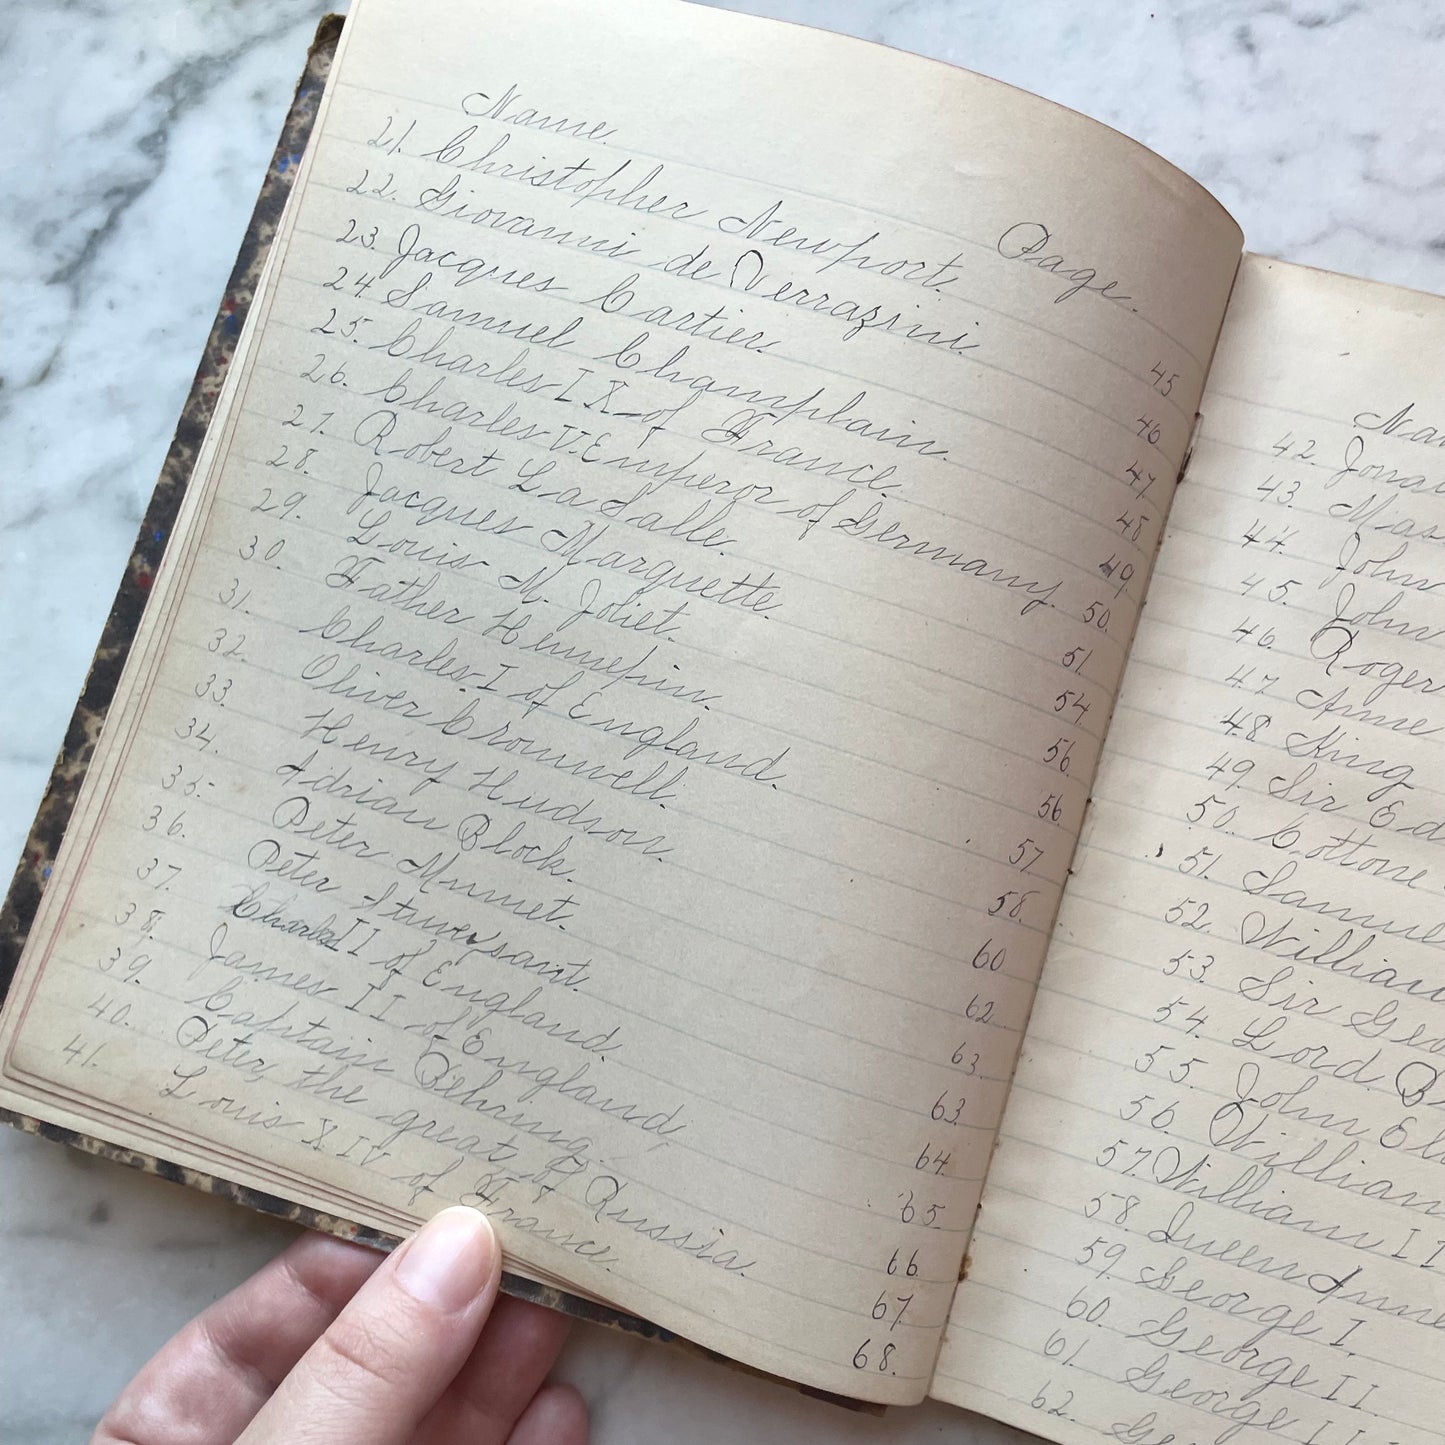 Name. Page.
21. Christopher Newport. 45
22. Giovanni de Verrazini. 46
23. Jacques Cartier. 47
24. Samuel Champlain. 48
25. Charles IX of France. 49
26. Charles V. Emperor of Germany. 50
27. Robert La Salle. 51
28. Jacques Marquette. 54
29. Louis M. Joliet. 56
30. Father Hennepin. 56
31. Charles I of England. 57
32. Oliver Cromwell. 58
33 Henry Hudson. 60
34. Adrian Block. 62
35. Peter Minuet. 63
36. Peter Stuveysant. 63
37. Charles II of England. 64
38. James II of England, 65
39. Captain Behring. 66
40. Peter, the great of Russia. 67
41. Louis XIV of France. 68.
Na
42. Jona
43. Mas
44. John
45. John
46. Roger
47 Anne
48 King
49. Sir Ed
50. Cottone
51. Samuel
52. William
53. Sir Geo
54. Lord B
55. John El
56. William
57. William II
58 Queen Anne
59. George I.
60. George II.
61. George II
62. Ge